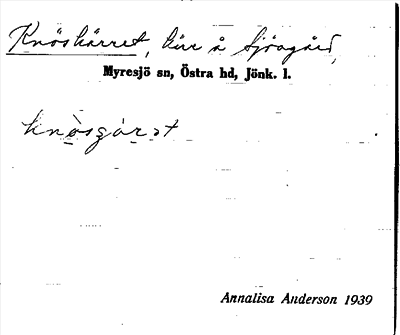 Knöskärret, kärr å Sjöagård,
Myresjö sn, Östra hd, Jönk. l.
knòsgárət
Annalisa Anderson 1939